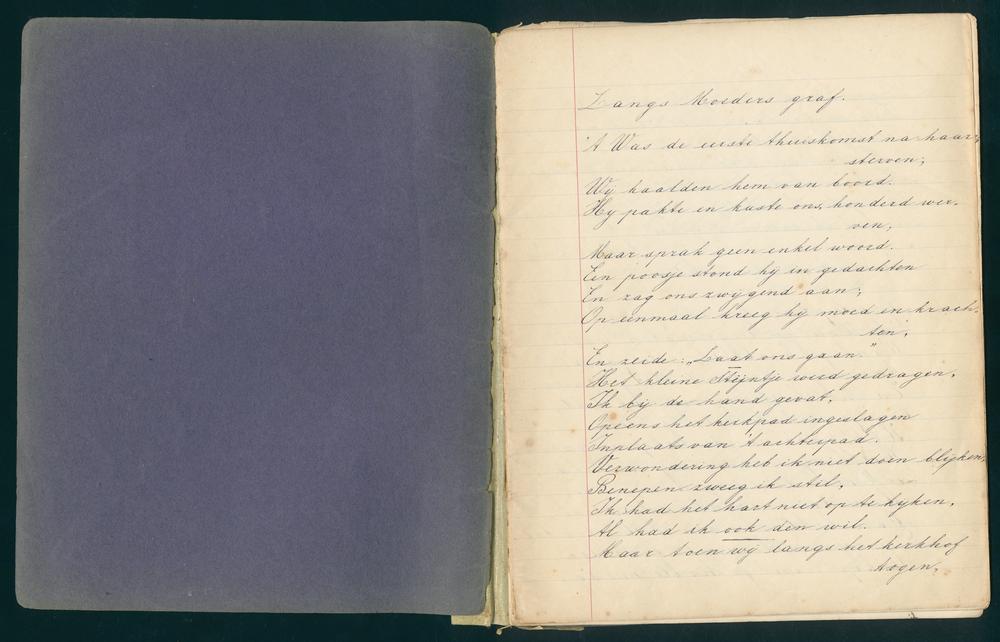 Langs Moeders graf.
't Was de eerste thuiskomst na haar
sterven;
Wij haalden hem van boord.
Hij pakte en kuste ons, honderd wer-
ven,
Maar sprak geen enkel woord.
Een poosje stond hij in gedachten
En zag ons zwijgend aan;
Op eenmaal kreeg hij moed en krach-
ten,
En zeide: „Laat ons gaan"
Het kleine Stijntje werd gedragen,
Ik bij de hand gevat,
Opeens het kerkpad ingeslagen
Inplaats van 't achterpad.
Verwondering heb ik niet doen blijken,
Benepen zweeg ik stil,
Ik had het hart niet op te kijken,
Al had ik ook den wil.
Maar toen wij langs het kerkhof
togen,